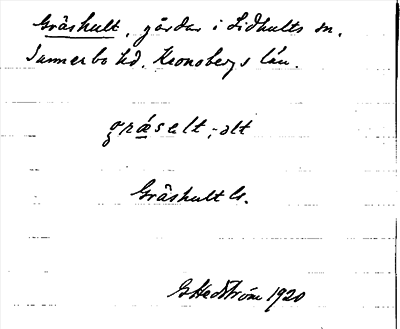 Gråshult, gårdar i Lidhults sn,
Sunnerbo hd. Kronobergs län.
gråsalt, -alt
Gråshult ls.
GHedström 1920